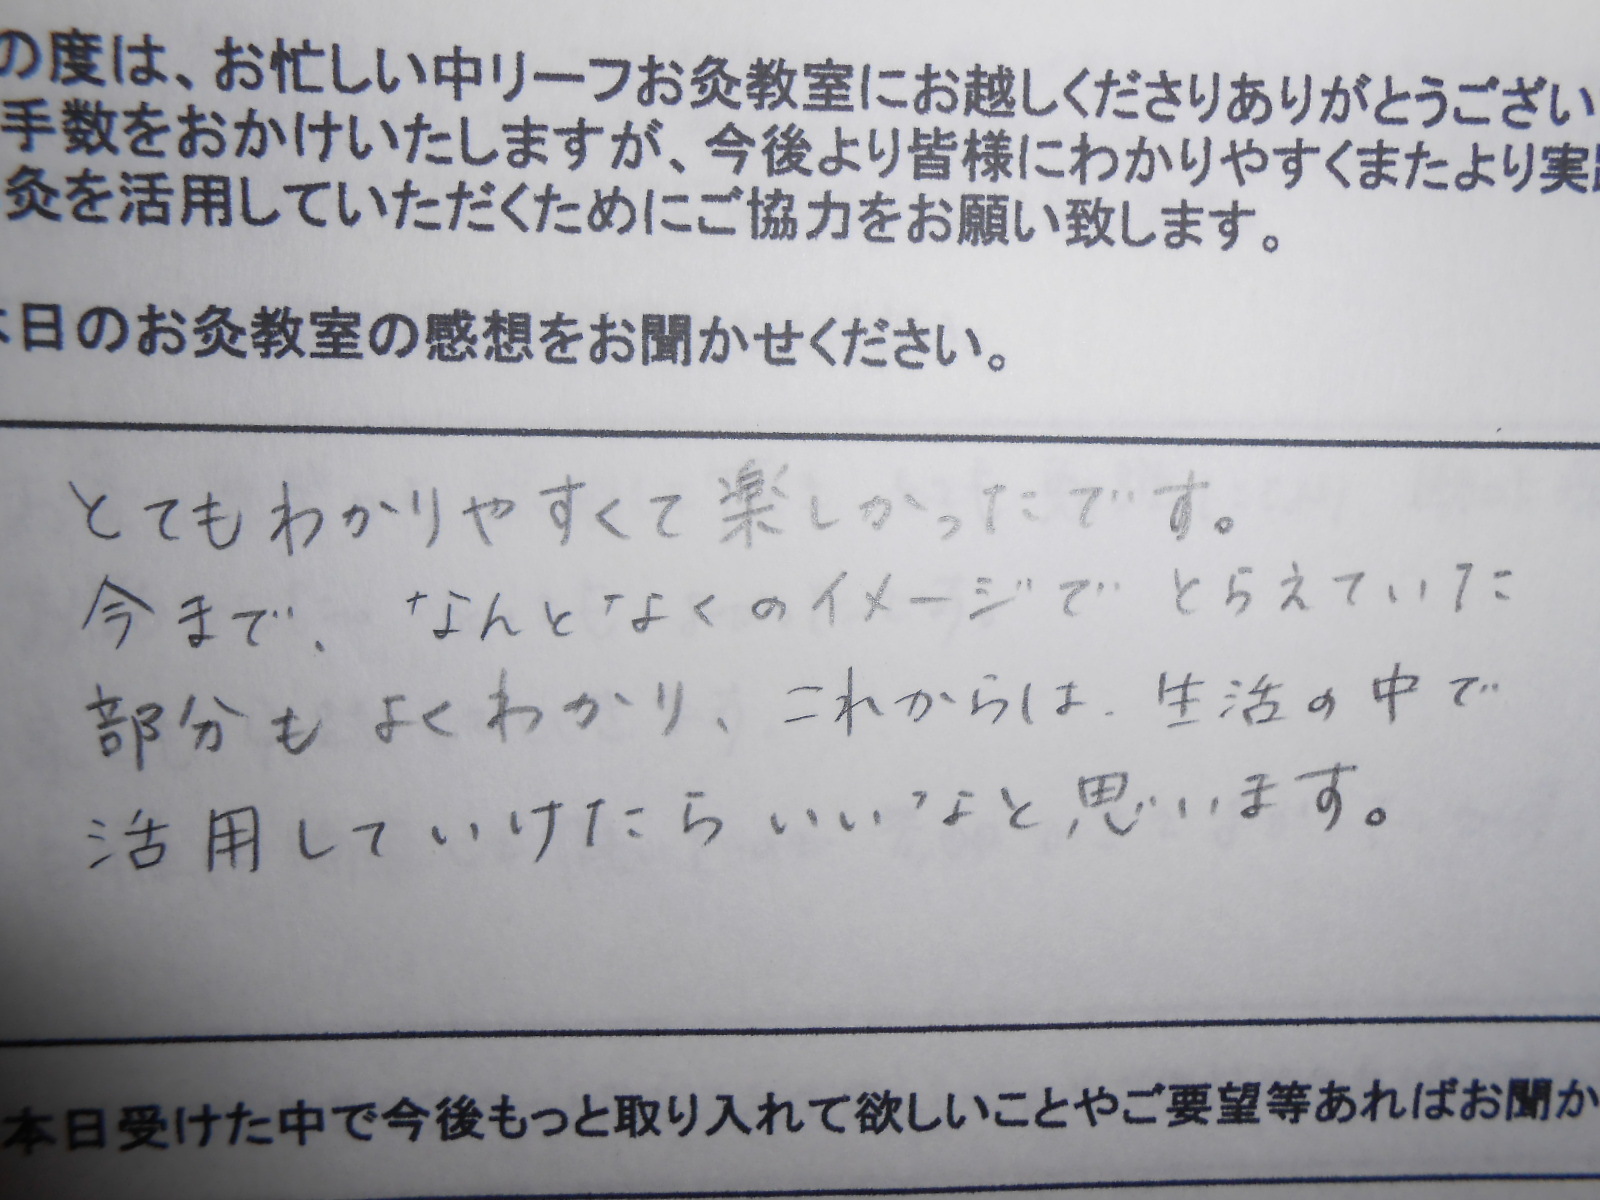 の度は、お忙しい中リーフお灸教室にお越しくださりありがとうござい
手数をおかけいたしますが、今後より皆様にわかりやすくまたより実
灸を活用していただくためにご協力をお願い致します。
本日のお灸教室の感想をお聞かせください。
とてもわかりやすくて楽しかったです。
今まで、なんとなくのイメージでとらえていた
部分もよくわかり、これからは、生活の中で
活用していけたらいいなと思います。
本日受けた中で今後もっと取り入れて欲しいことやご要望等あればお聞か